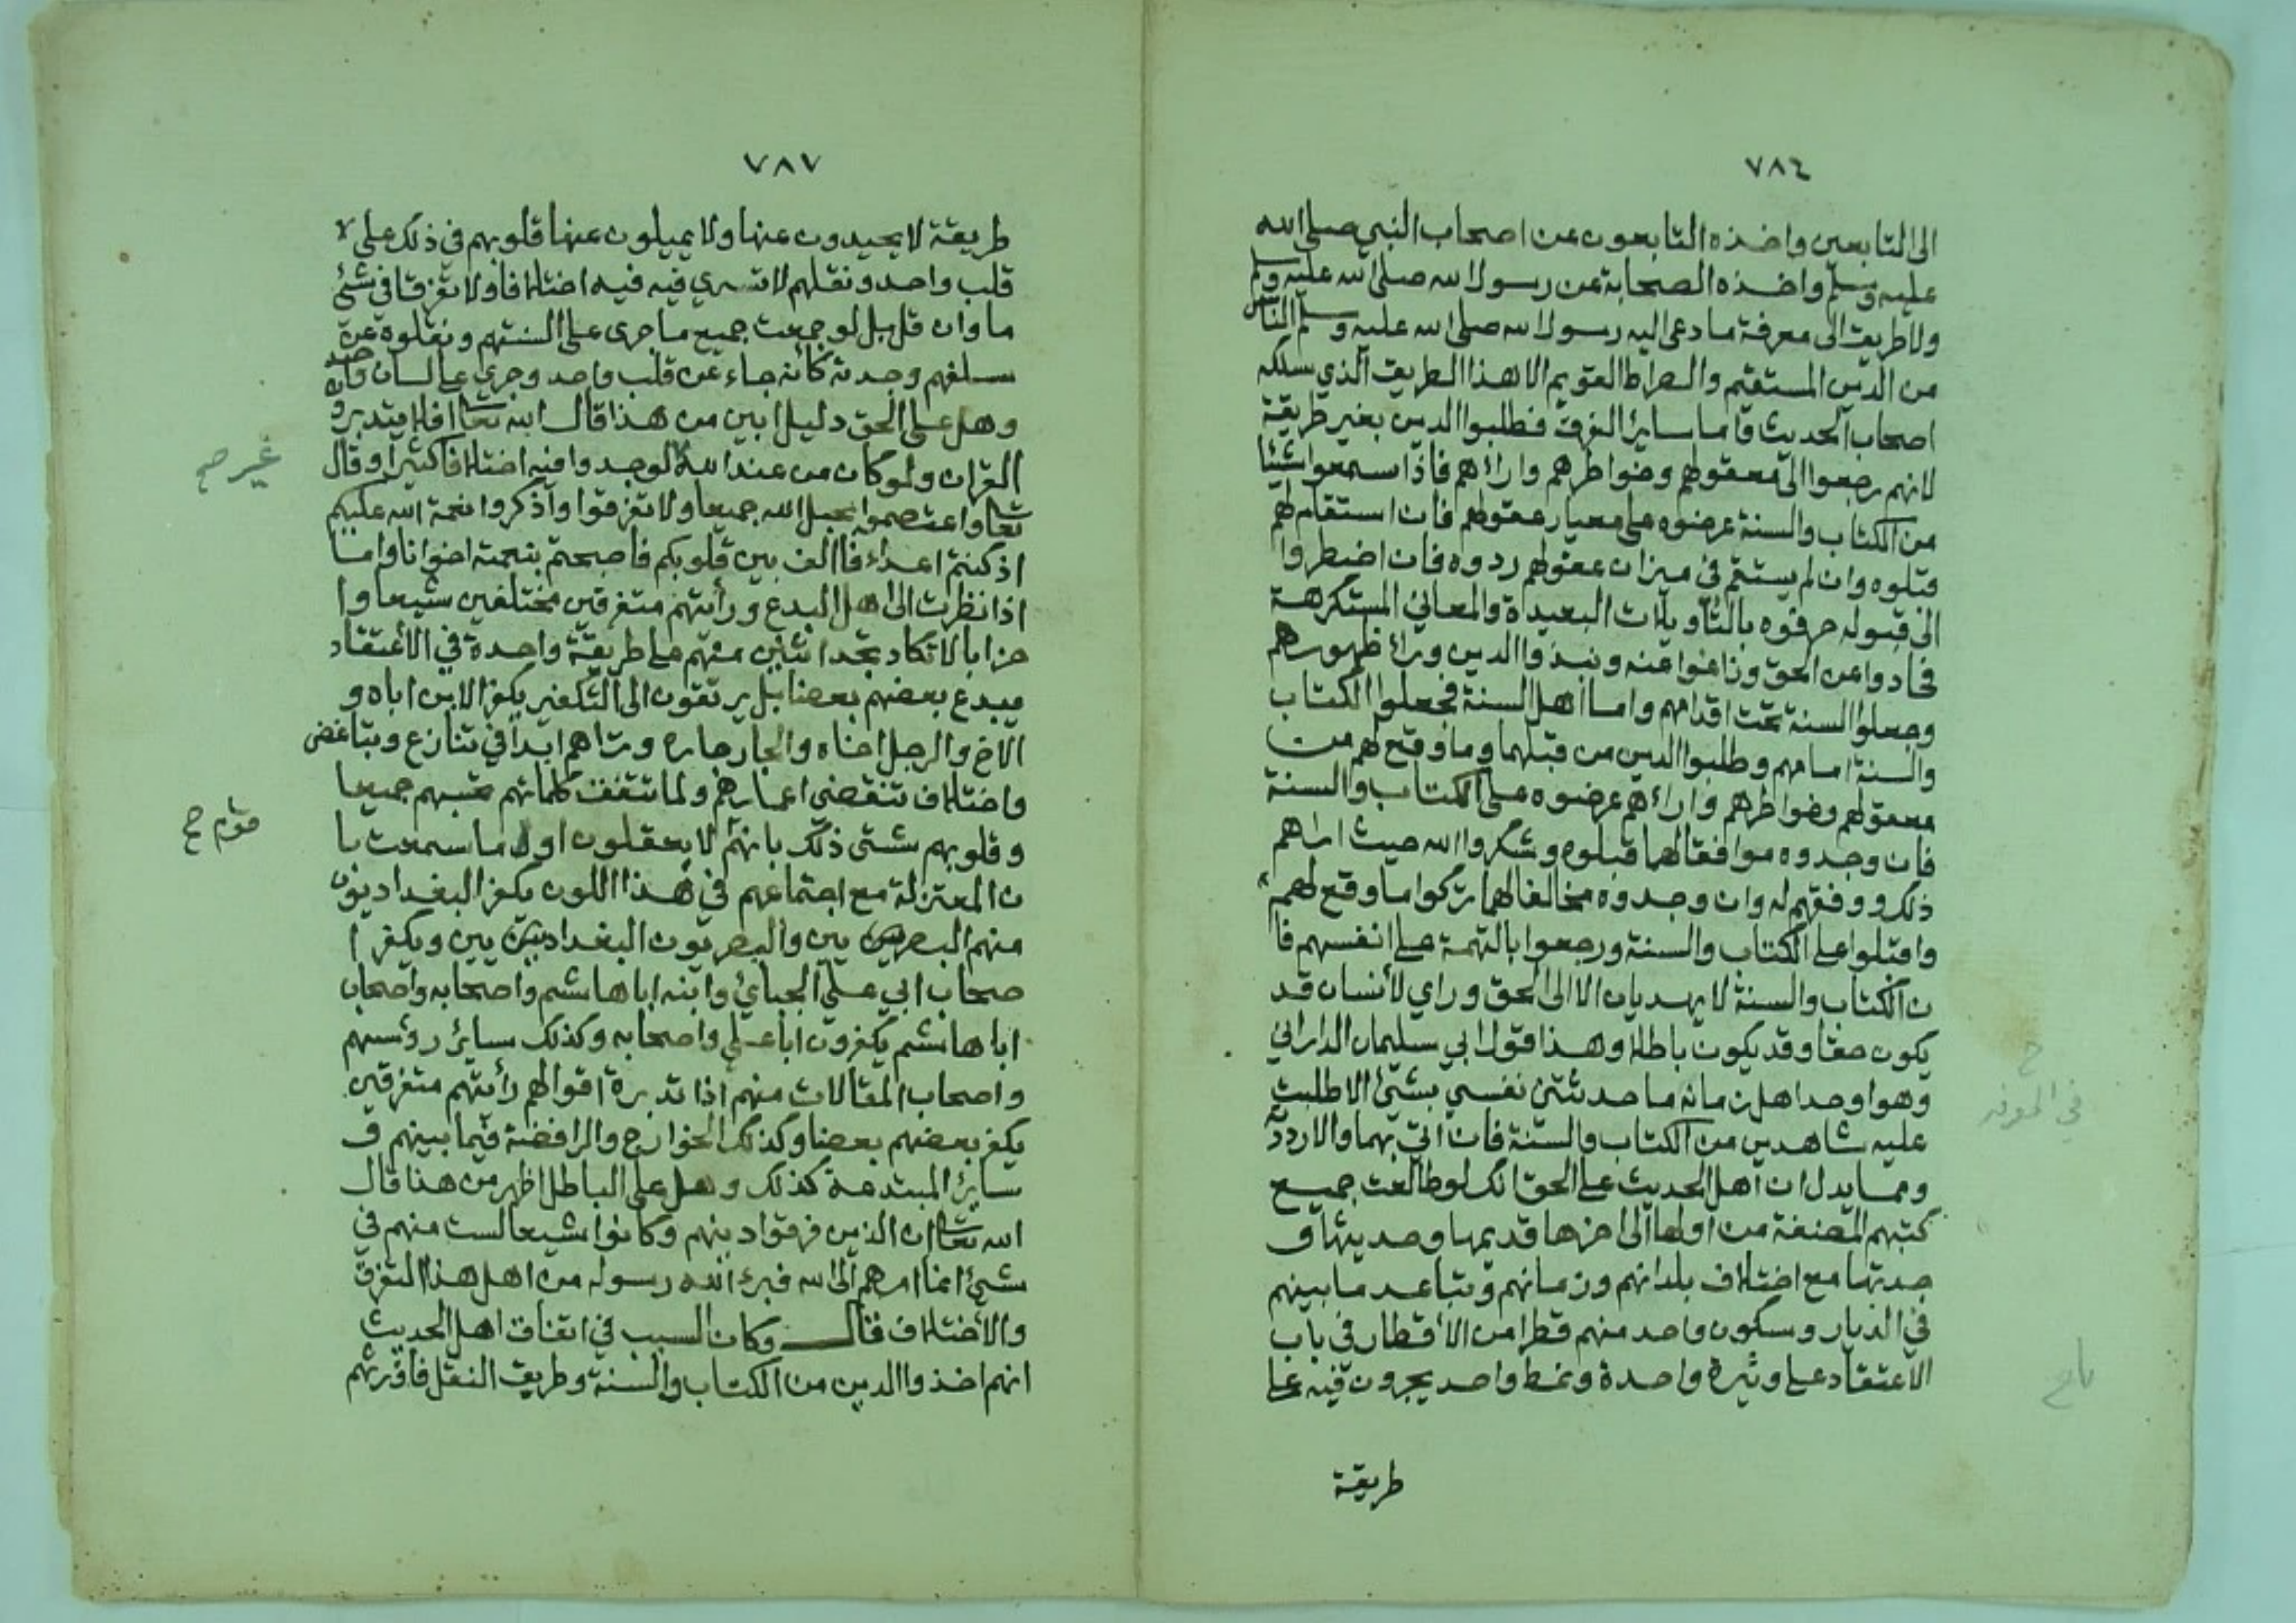 ٧٨٤
الى التابعين واخذه التابعون عن اصحاب النبي صلى الله
عليه وسلم واخذه الصحابة عن رسول الله صلى الله عليه وسلم
ولا طريق الى معرفة ما دعى اليه رسول الله صلى الله عليه وسلم الناس
من الدين المستقيم والصراط القويم الا هذا الطريق الذي سلكه
اصحاب الحديث فاما ساير الفرق فطلبوا الدين بغير طريقة
لانهم رجعوا الى معقولهم وخواطرهم واراءهم فاذا سمعوا شيئا
من الكتاب والسنة عرضوه على معيار عقولهم فان استقام لهم
قبلوه وان لم يستقم في ميزان عقولهم ردوه فان اضطروا
الى قبوله حرفوه بالتأويلات البعيدة والمعاني المستكرهة
فحادوا عن الحق وزاغوا عنه ونبذوا الدين وراء ظهورهم
وجعلوا السنة تحت اقدامهم واما اهل السنة فجعلوا الكتاب
والسنة امامهم وطلبوا الدين من قبلهما وما وقع لهم من
معقولهم وخواطرهم واراءهم عرضوه على الكتاب والسنة
فان وجدوه موافقا لهما قبلوه وشكروا الله حيث اراهم
ذلك ووفقهم له وان وجدوه مخالفا لهما تركوا ما وقع لهم
واقبلوا على الكتاب والسنة ورجعوا بالتهمة على انفسهم فا
ن الكتاب والسنة لا يهديان الا الى الحق وراي لأنسان قد
يكون حقا وقد يكون باطلا وهذا قول ابي سليمان الداراني
وهو اوحد اهل زمانه ما حدثتني نفسي بشئ الا طلبت
عليه شاهدين من الكتاب والسنة فان اتى بهما والا رددته
ومما يدل ان اهل الحديث على الحق انك لو طالعت جميع
كتبهم المصنفة من اولها الى اخرها قديمها وحديثها و
جدتها مع اختلاف بلدانهم وزمانهم وتباعد ما بينهم
في الديار وسكون واحد منهم قطرا من الأقطار في باب
الاعتقاد على وتيرة واحدة ونمط واحد يجرون فيه على
طريقة
٧٨٧
طريقة لا يحيدون عنها ولا يميلون عنها قلوبهم في ذلك على لا
قلب واحد ونقلهم لا تسري فيه فيه اختلافا ولا تفرقا في شئ
ما وان قل بل لو جمعت جميع ما جرى على السنتهم ونقلوه عن
سلفهم وجدته كأنه جاء عن قلب واحد وجرى على لسان واحد
وهل على الحق دليل ابين من هذا قال الله تعالى افلا يتدبرو
القران ولو كان من عند الله لوجدوا فيه اختلافا كثيرا وقال
غير صح
تعالى واعتصموا بحبل الله جميعا ولا تفرقوا واذكروا نعمة الله عليكم
اذ كنتم اعداء فاالف بين قلوبكم فاصبحتم بنعمته اخوانا واما
اذا نظرت الى اهل البدع ورأيتهم متفرقين مختلفين شيعا وا
حزابا لا تكاد تجد اثنين منهم على طريقة واحدة في الأعتقاد
يبدع بعضهم بعضا بل يرتقون الى التكفير يكفر الابن اباه و
الاخ والرجل اخاه والجار جاره وتراهم ابدا في تنازع وتباغض
واختلاف تنقضي اعمارهم ولما تتفق كلماتهم تحسبهم جميعا
وقلوبهم شتى ذلك بانهم لا يعقلون اولا ما سمعت با
قوم صح
ن المعتزلة مع اجتماعهم في هذا اللون يكفر البغداديون
منهم البصريين والبصريون البغداديين ويكفر ا
صحاب ابي علي الجبائي وابنه ابا هاشم واصحابه واصحاب
ابا هاشم يكفرون ابا علي واصحابه وكذلك ساير رؤسهم
واصحاب المقالات منهم اذا تدبرة اقوالهم رأيتهم متفرقين
يكفر بعضهم بعضا وكذلك الخوارج والرافضة فيما بينهم و
ساير المبتدعة كذلك وهل على الباطل اظهر من هذا قال
الله تعالى ان الذين فرقوا دينهم وكانوا شيعا لست منهم في
شئ انما امرهم الى الله فبرء الله رسوله من اهل هذا التفرق
والأختلاف قال وكان السبب في اتفاق اهل الحديث
انهم اخذوا الدين من الكتاب والسنة وطريق النقل فاورثهم